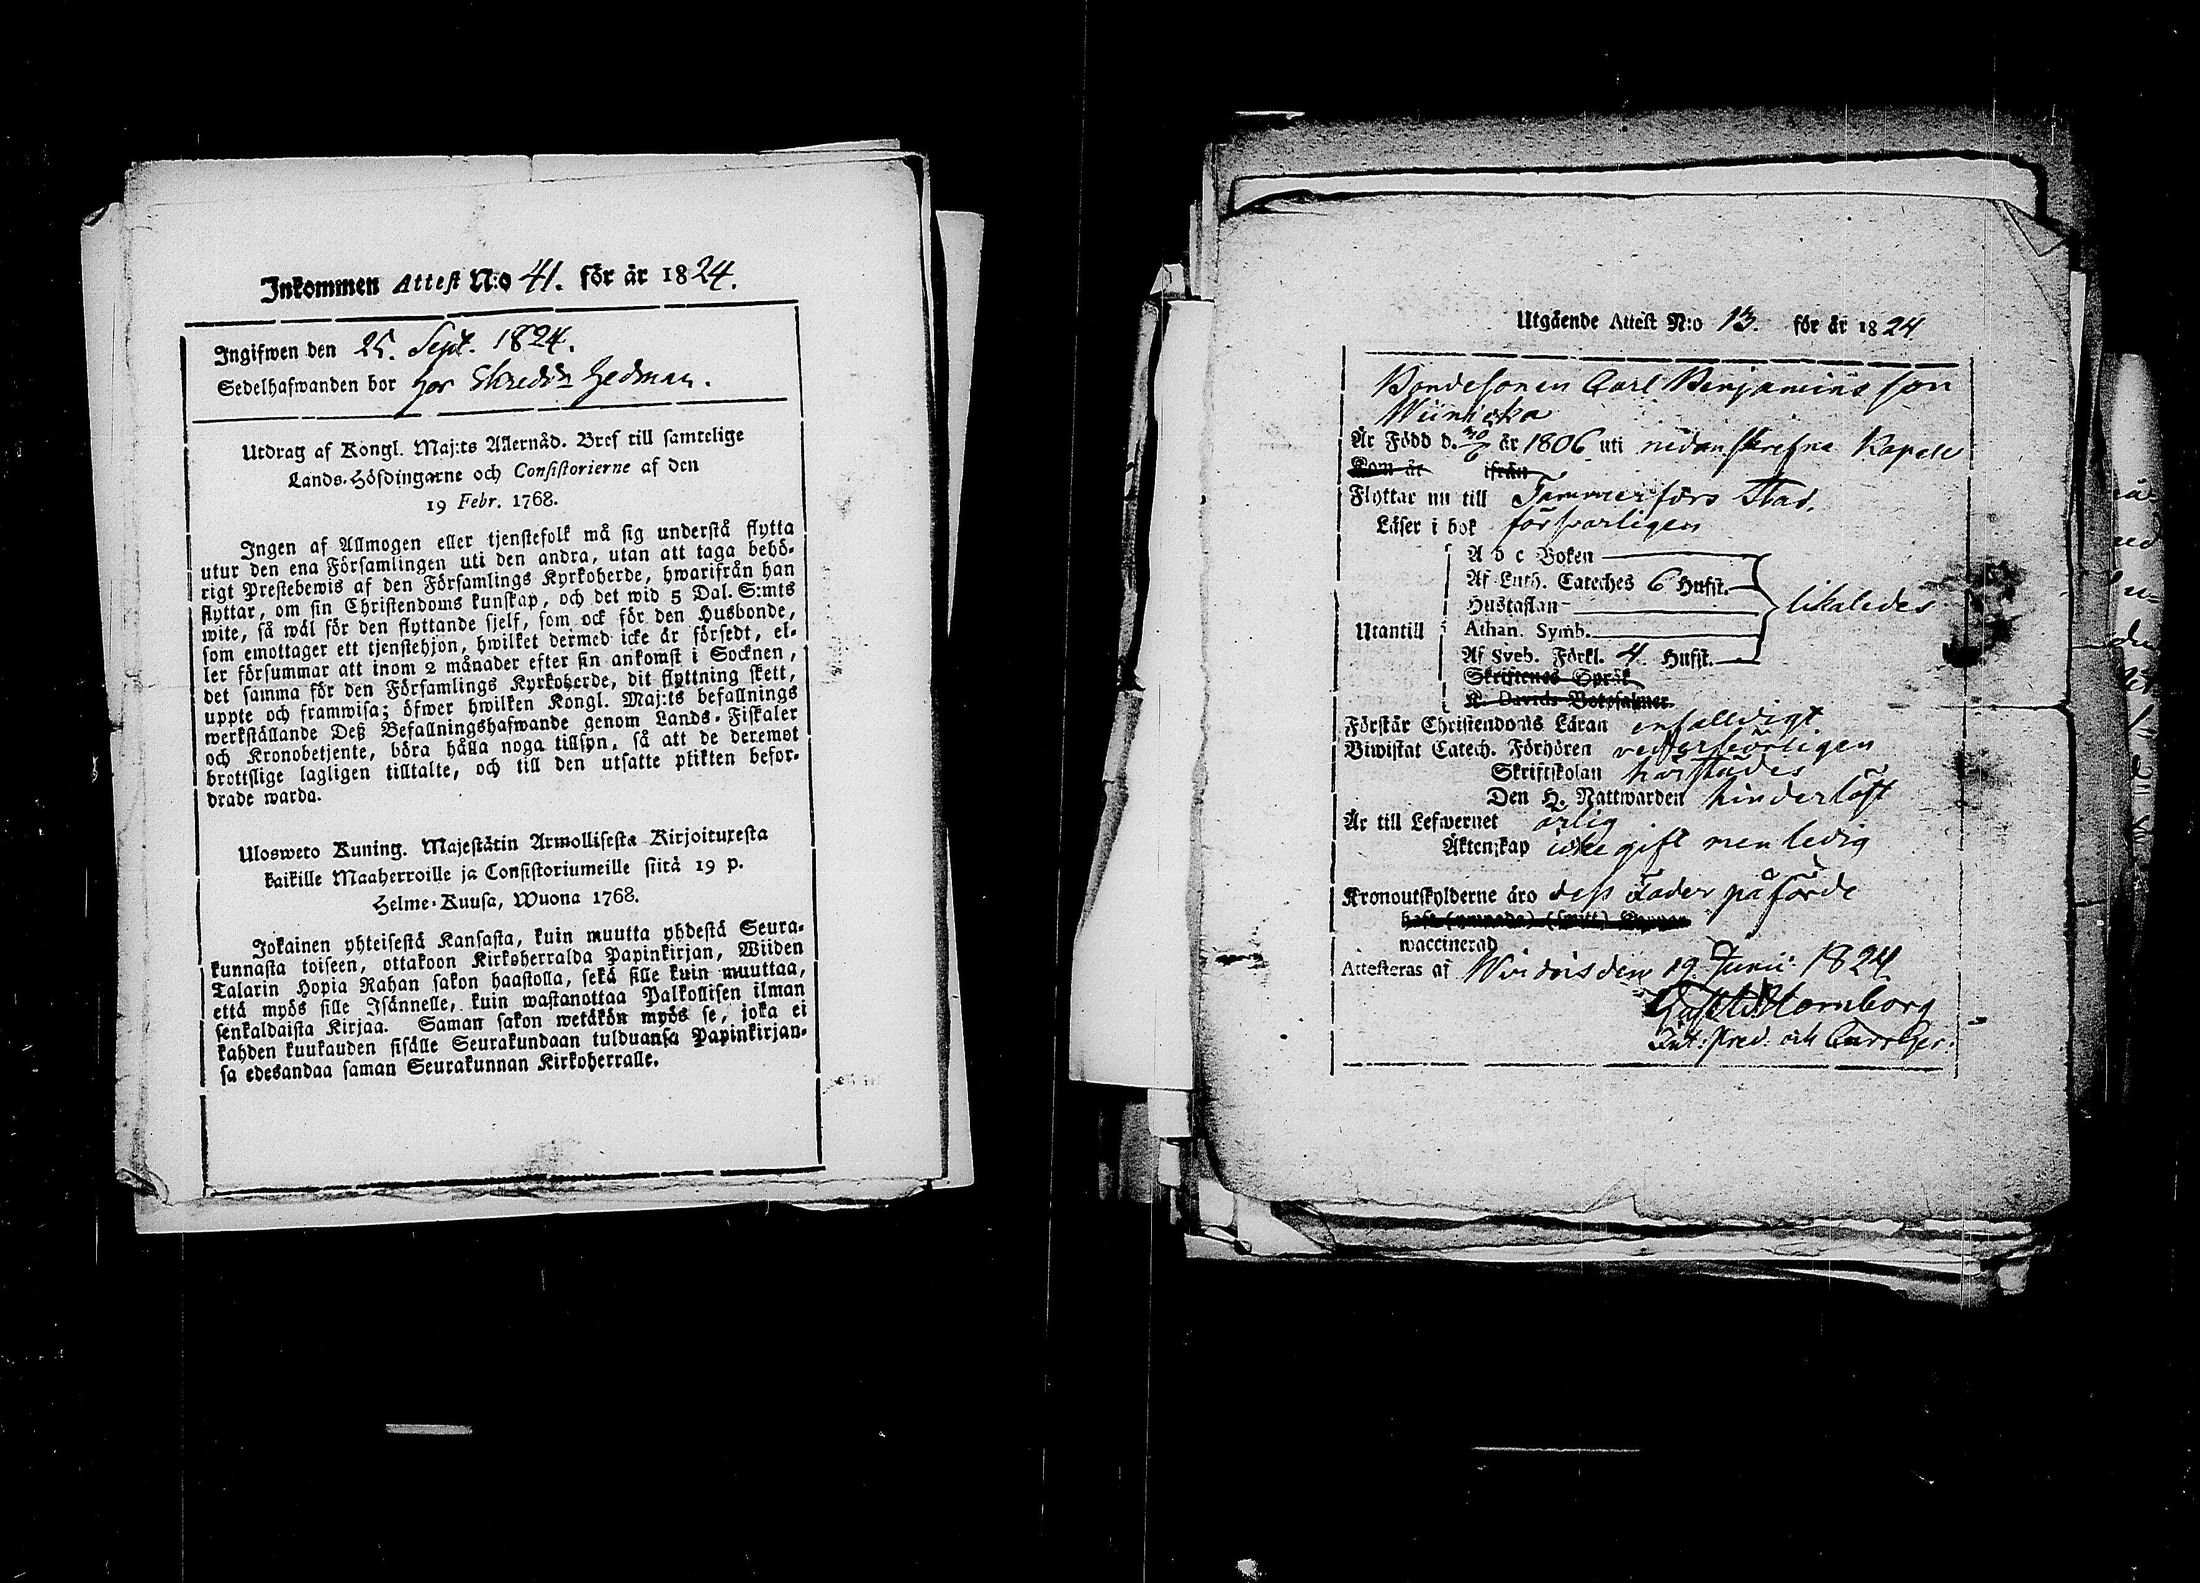 Inkommen Attest N:o 41. för år 1824.
Ingifwen den 25. Sept. 1824.
Sedelhafwanden bor hos Skreddr Hedman.
Utdrag af Kongl. Maj:ts Allernåd. Bref till samtelige
Lands-Höfdingarne och Consistorierne af den
19 Febr. 1768.
Ingen af Allmogen eller tjenstefolk må sig understå flytta
utur den ena Församlingen uti den andra, utan att taga behö-
rigt Prestebewis af den Församlings Kyrkoherde, hwarifrån han
flyttar, om sin Christendoms kunskap, och det wid 5 Dal. S:mts
wite, så wäl för den flyttande sjelf, som ock för den Husbonde,
som emottager ett tjenstehjon, hwilket dermed icke är försedt, el-
ler försummar att inom 2 månader efter sin ankomst i Socknen,
det samma för den Församlings Kyrkoherde, dit flyttning skett,
uppte och framwisa; öfwer hwilken Kongl. Maj:ts befallnings
werkställande Deß Befallningshafwande genom Lands-Fiskaler
och Kronobetjente, böra hålla noga tillsyn, så att de deremot
brottslige lagligen tilltalte, och till den utsatte plikten befor-
drade warda.
Ulosweto Kuning. Majestätin Armollisesta Kirjoituxesta
kaikille Maaherroille ja Consistoriumeille siitä 19 p.
Helme-Kuusa, Wuona 1768.
Jokainen yhteisestä Kansasta, kuin muutta yhdestä Seura-
kunnasta toiseen, ottakoon Kirkoherralda Papinkirjan, Wiiden
Talarin Hopia Rahan sakon haastolla, sekä sille kuin muuttaa,
että myös sille Isännelle, kuin wastanottaa Palkollisen ilman
senkaldaista Kirjaa. Saman sakon wetäkön myös se, joka ei
kahden kuukauden sisälle Seurakundaan tulduansa Papinkirjan-
sa edesandaa saman Seurakunnan Kirkoherralle.
Utgående Attest N:o 13. för år 1824
Bondesonen Carl Benjamins son
Är Född d. 30/6 år 1806 uti nedanskrefna Kapell
Kom år ifrån
Flyttar nu till Tammerfors Stad.
Läser i bok försvarligen
A b c Boken
Af Luth. Cateches 6 Hufst.
Hustaflan likaledes
Utantill Athan. Symb.
Af Sveb. Förkl. 4 Hufst.
Skriftenes Språk
K. Davids Botpsalmer
Förstår Christendoms Läran enfalldigt
Biwistat Catech. Förhören vederbörligen
Skriftskolan härstädes
Den H. Nattwarden hinderlöst
Är till Lefwernet ärlig
Äktenskap icke gift men ledig
Kronoutskylderne äro dess Fader påförde
waccinerad
Attesteras af Wirdois den 19 Junii 1824